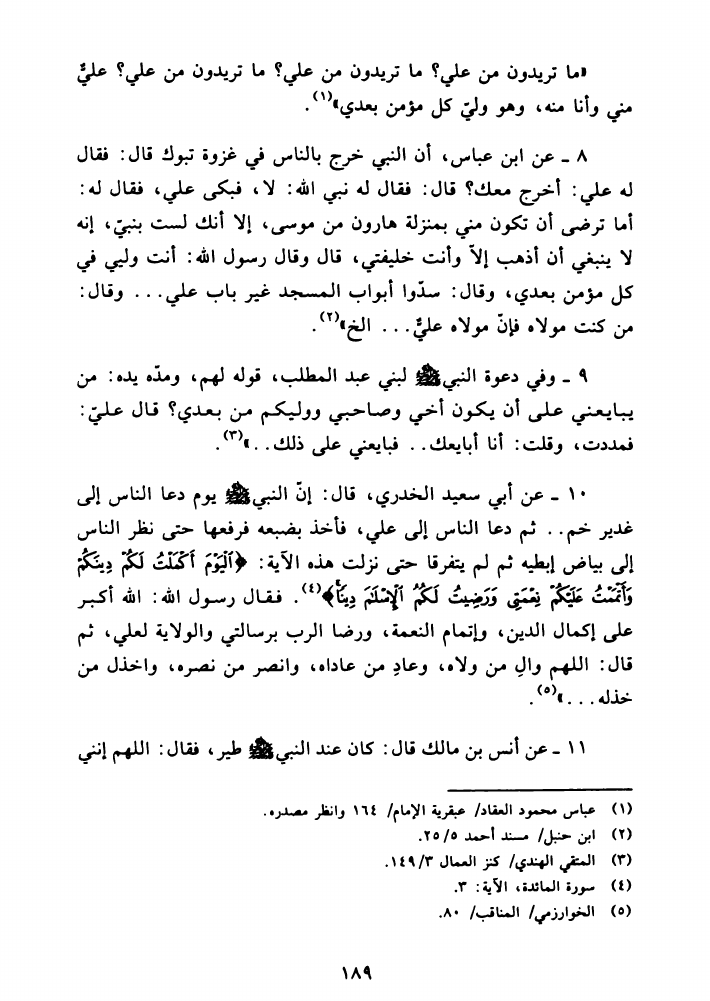 «ما تريدون من علي؟ ما تريدون من علي؟ ما تريدون من علي؟ عليٌّ
مني وأنا منه، وهو وليّ كل مؤمن بعدي»(١).
٨ ـ عن ابن عباس، أن النبي خرج بالناس في غزوة تبوك قال: فقال
له علي: أخرج معك؟ قال: فقال له نبي الله: لا، فبكى علي، فقال له:
أما ترضى أن تكون مني بمنزلة هارون من موسى، إلا أنك لست بنبيّ، إنه
لا ينبغي أن أذهب إلاّ وأنت خليفتي، قال وقال رسول الله: أنت وليي في
كل مؤمن بعدي، وقال: سدّوا أبواب المسجد غير باب علي... وقال:
من كنت مولاه فإنّ مولاه عليٌّ... الخ»(٢).
٩ ـ وفي دعوة النبي ﷺ لبني عبد المطلب، قوله لهم، ومدّه يده: من
يبايعني على أن يكون أخي وصاحبي ووليكم من بعدي؟ قال عليّ:
فمددت، وقلت: أنا أبايعك.. فبايعني على ذلك..»(٣).
١٠ ـ عن أبي سعيد الخدري، قال: إنّ النبي ﷺ يوم دعا الناس إلى
غدير خم.. ثم دعا الناس إلى علي، فأخذ بضبعه فرفعها حتى نظر الناس
إلى بياض إبطيه ثم لم يتفرقا حتى نزلت هذه الآية: ﴿ٱلۡيَوۡمَ أَكۡمَلۡتُ لَكُمۡ دِينَكُمۡ
وَأَتۡمَمۡتُ عَلَيۡكُمۡ نِعۡمَتِي وَرَضِيتُ لَكُمُ ٱلۡإِسۡلَٰمَ دِينٗاۚ﴾(٤). فقال رسول الله: الله أكبر
على إكمال الدين، وإتمام النعمة، ورضا الرب برسالتي والولاية لعلي، ثم
قال: اللهم والِ من ولاه، وعادِ من عاداه، وانصر من نصره، واخذل من
خذله...»(٥).
١١ ـ عن أنس بن مالك قال: كان عند النبي ﷺ طير، فقال: اللهم إنني
(١) عباس محمود العقاد/ عبقرية الإمام/ ١٦٤ وانظر مصدره.
(٢) ابن حنبل/ مسند أحمد ٢٥/٥.
(٣) المتقي الهندي/ كنز العمال ١٤٩/٣.
(٤) سورة المائدة، الآية: ٣.
(٥) الخوارزمي/ المناقب/ ٨٠.
١٨٩